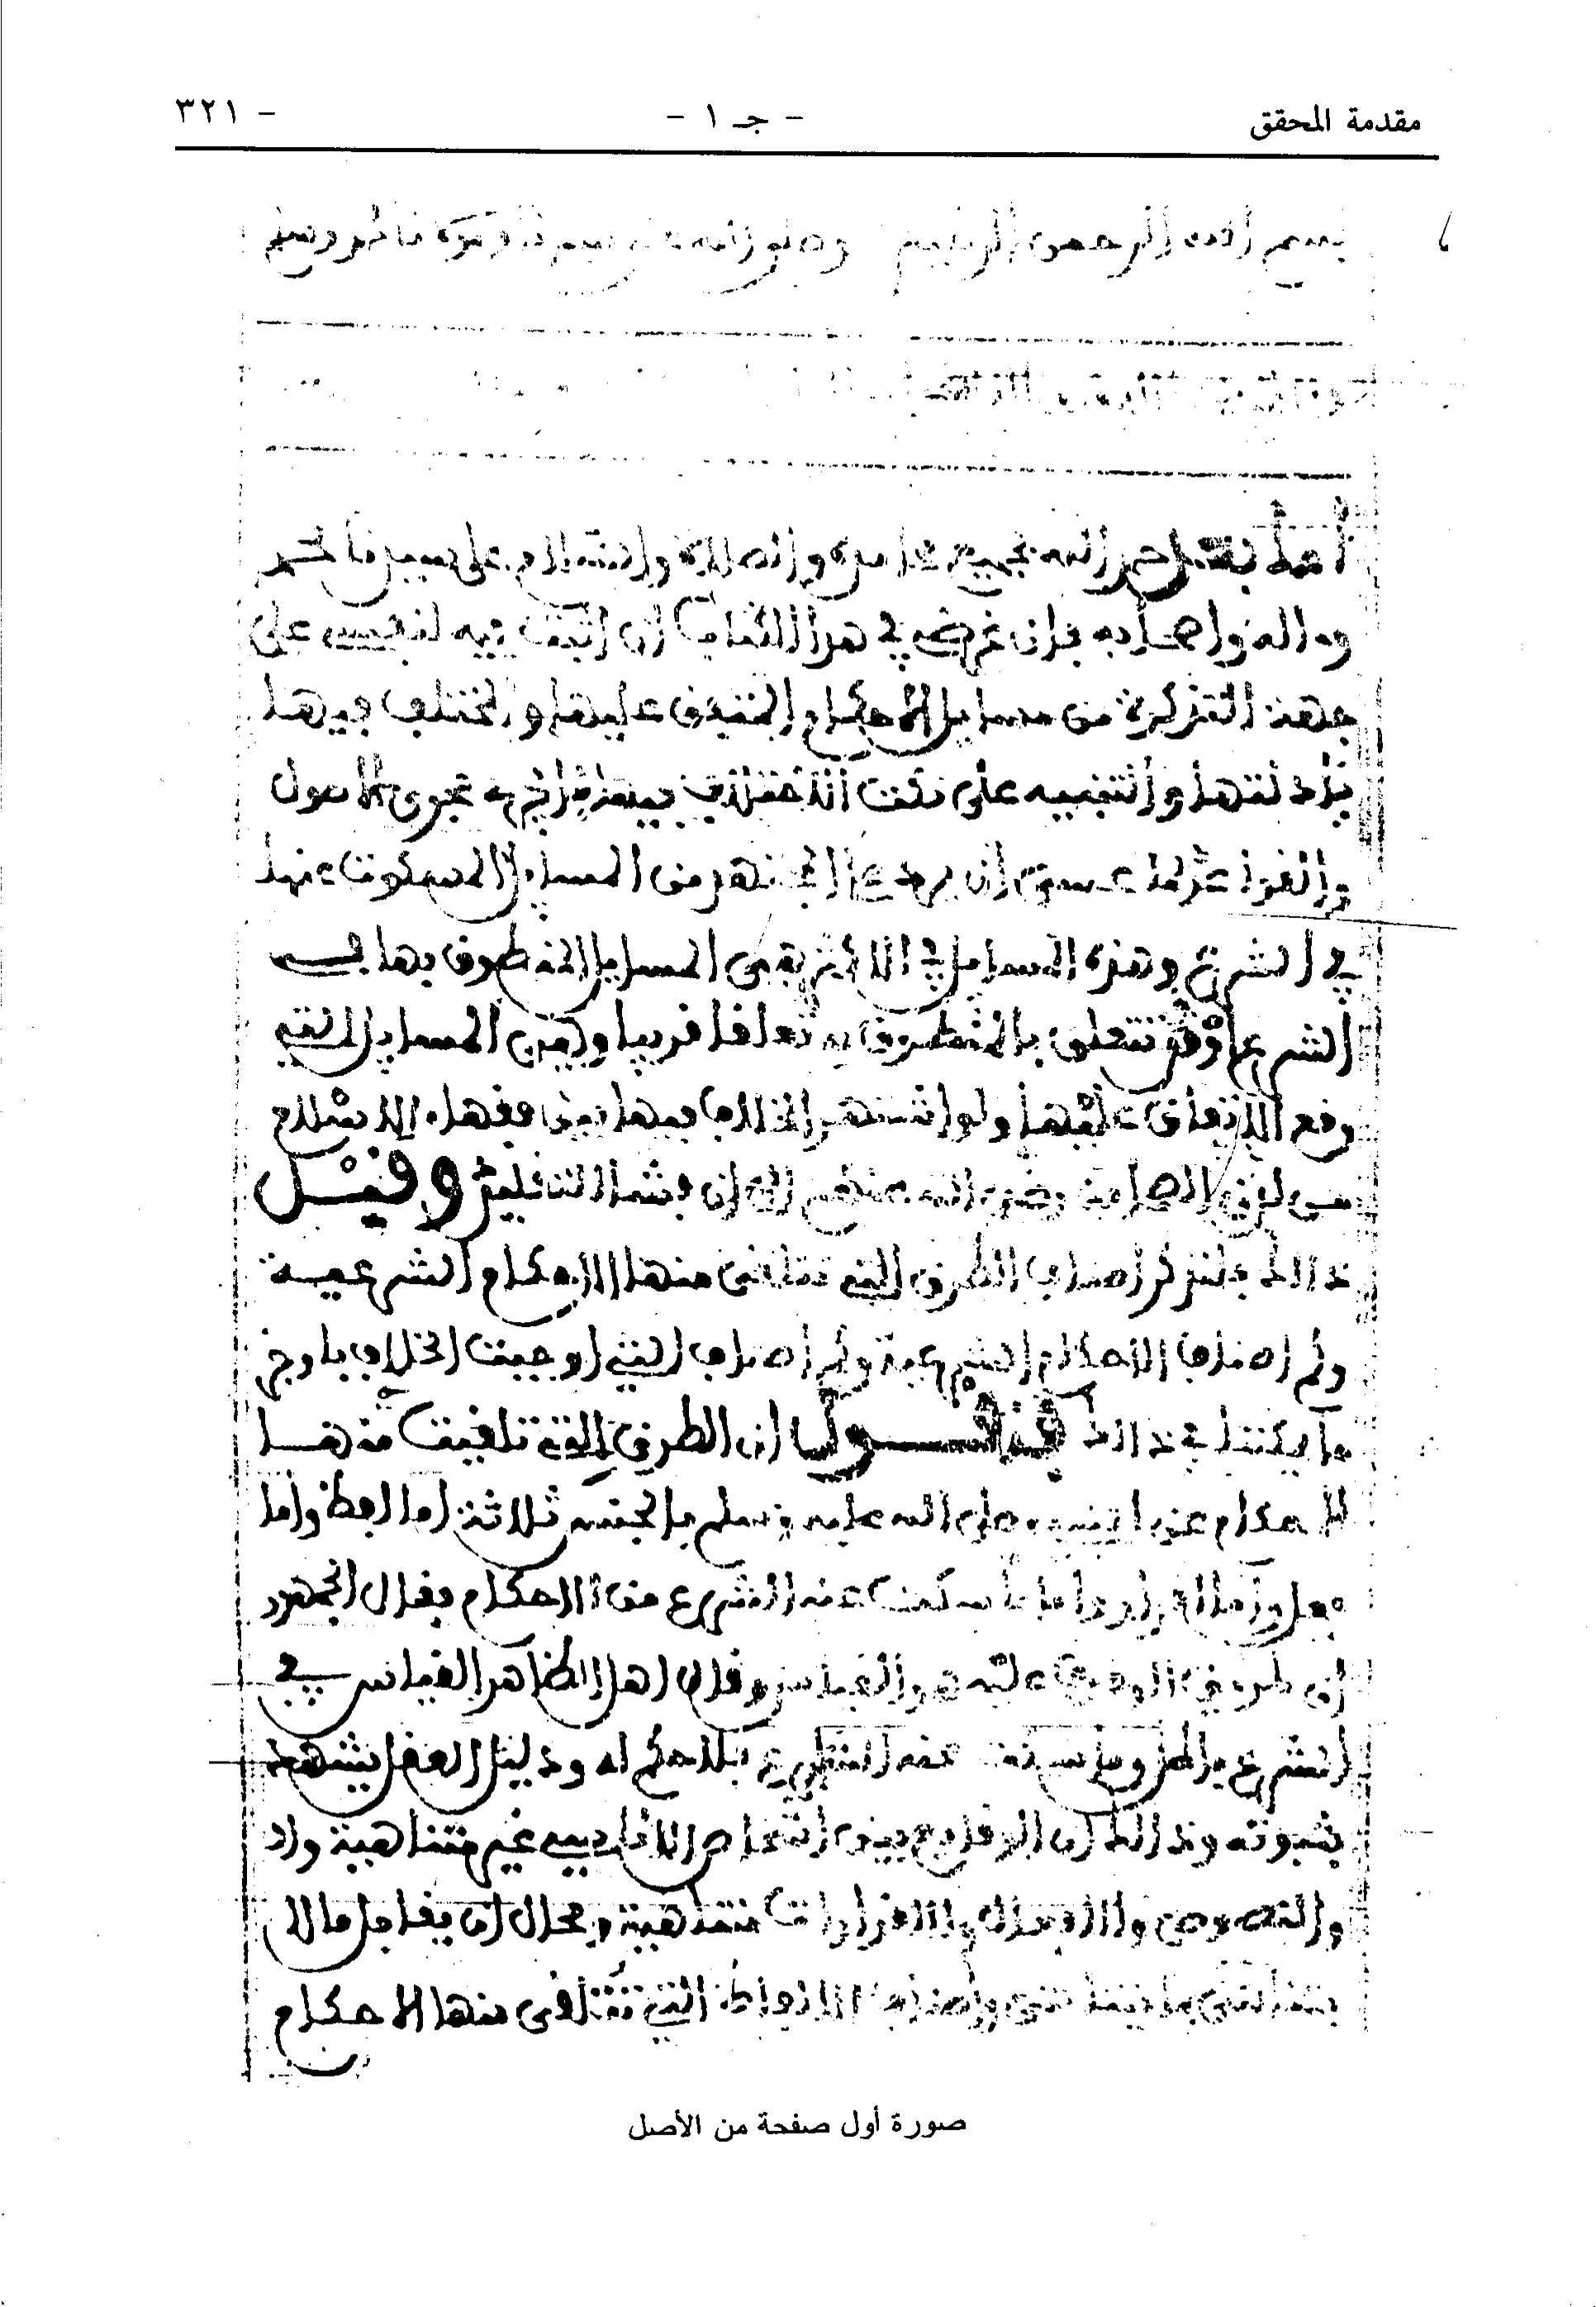 مقدمة المحقق - جـ ١ - - ٣٢١
بسم الله الرحمن الرحيم وصلى الله على
أما بعد حمد الله بجميع محامده والصلاة والسلام على سيدنا محمد
وءاله واصحابه فان غرضي في هذا الكتاب ان اثبت فيه لنفسي على
جهة التذكرة من مسايل الأحكام المتفق عليها والمختلف فيها
بأدلتها والتنبيه على نكت الاختلاف فيها ما يجري مجرى الاصول
والقواعد لما عسى ان يرد على المجتهد من المسايل المسكوت عنها
في الشرع وهذه المسايل في الاكثر هي المسايل المنطوق بها في
الشرع او تتعلق بالمنطوق به تعلقا قريبا وهي المسايل التي
وقع الاتفاق عليها او اشتهر الخلاف فيها بين فقهاء الاسلام
من لدن الصحابة رضي الله عنهم الى ان فشا التقليد وقبل
ذالك فلنذكر اصناف الطرق التي تتلقى منها الاحكام الشرعية
وكم اصناف الاحكام الشرعية وكم اصناف التي اوجبت الخلاف باوجز
ما يمكننا في ذالك فنقول ان الطرق التي تلقيت منها
الاحكام عن النبي صلى الله عليه وسلم بالجنس ثلاثة اما لفظ واما
فعل واما اقرار واما ما سكت عنه الشرع من الاحكام فقال الجمهور
ان طريق الوقوف عليه هو القياس وقال اهل الظاهر القياس في
الشرع باطل وما سكت عنه الشارع فلا حكم له ودليل العقل يشهد
بثبوته وذالك ان الوقايع بين اشخاص الاناسي غير متناهية
والنصوص والافعال والاقرارات متناهية ومحال ان يقابل ما لا
يتناهى بما يتناهى واصناف الالفاظ التي تتلقى منها الاحكام
صورة أول صفحة من الأصل